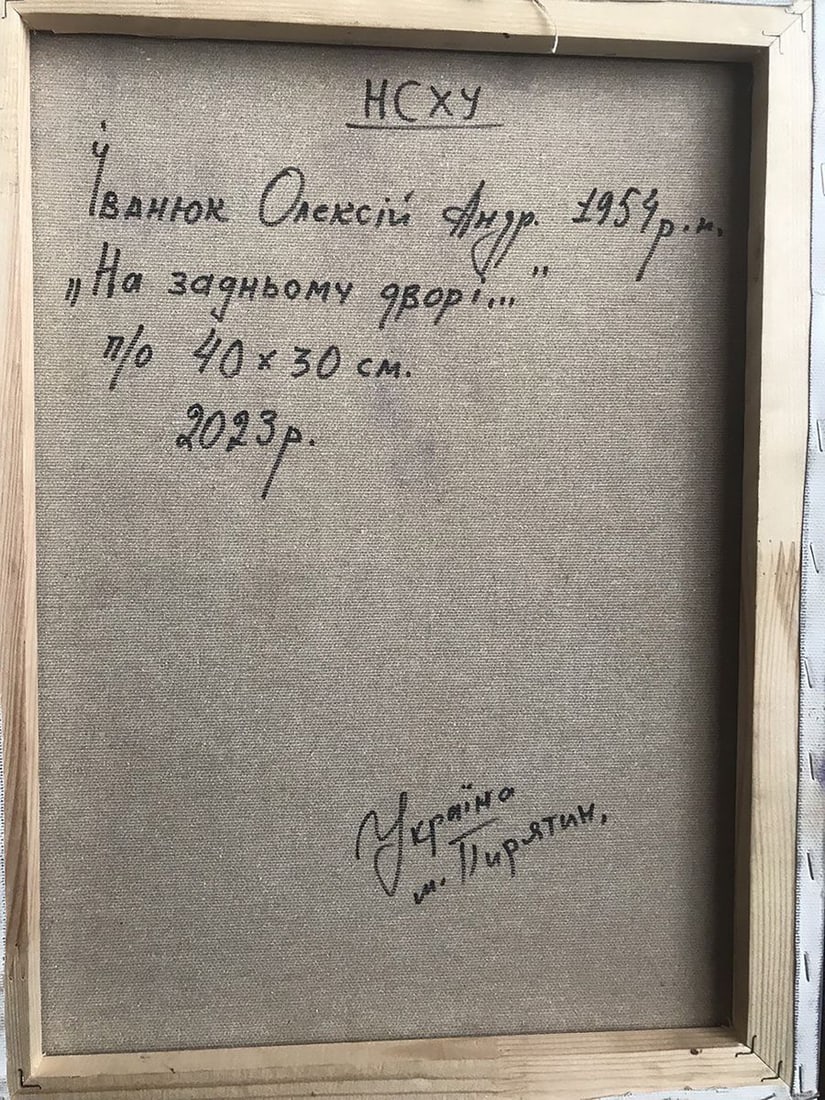 НСХУ
Іванюк Олексій Андр. 1954р.н.
„На задньому дворі..."
п/о 40 х 30 см.
2023р.
Україна
м. Пирятин,